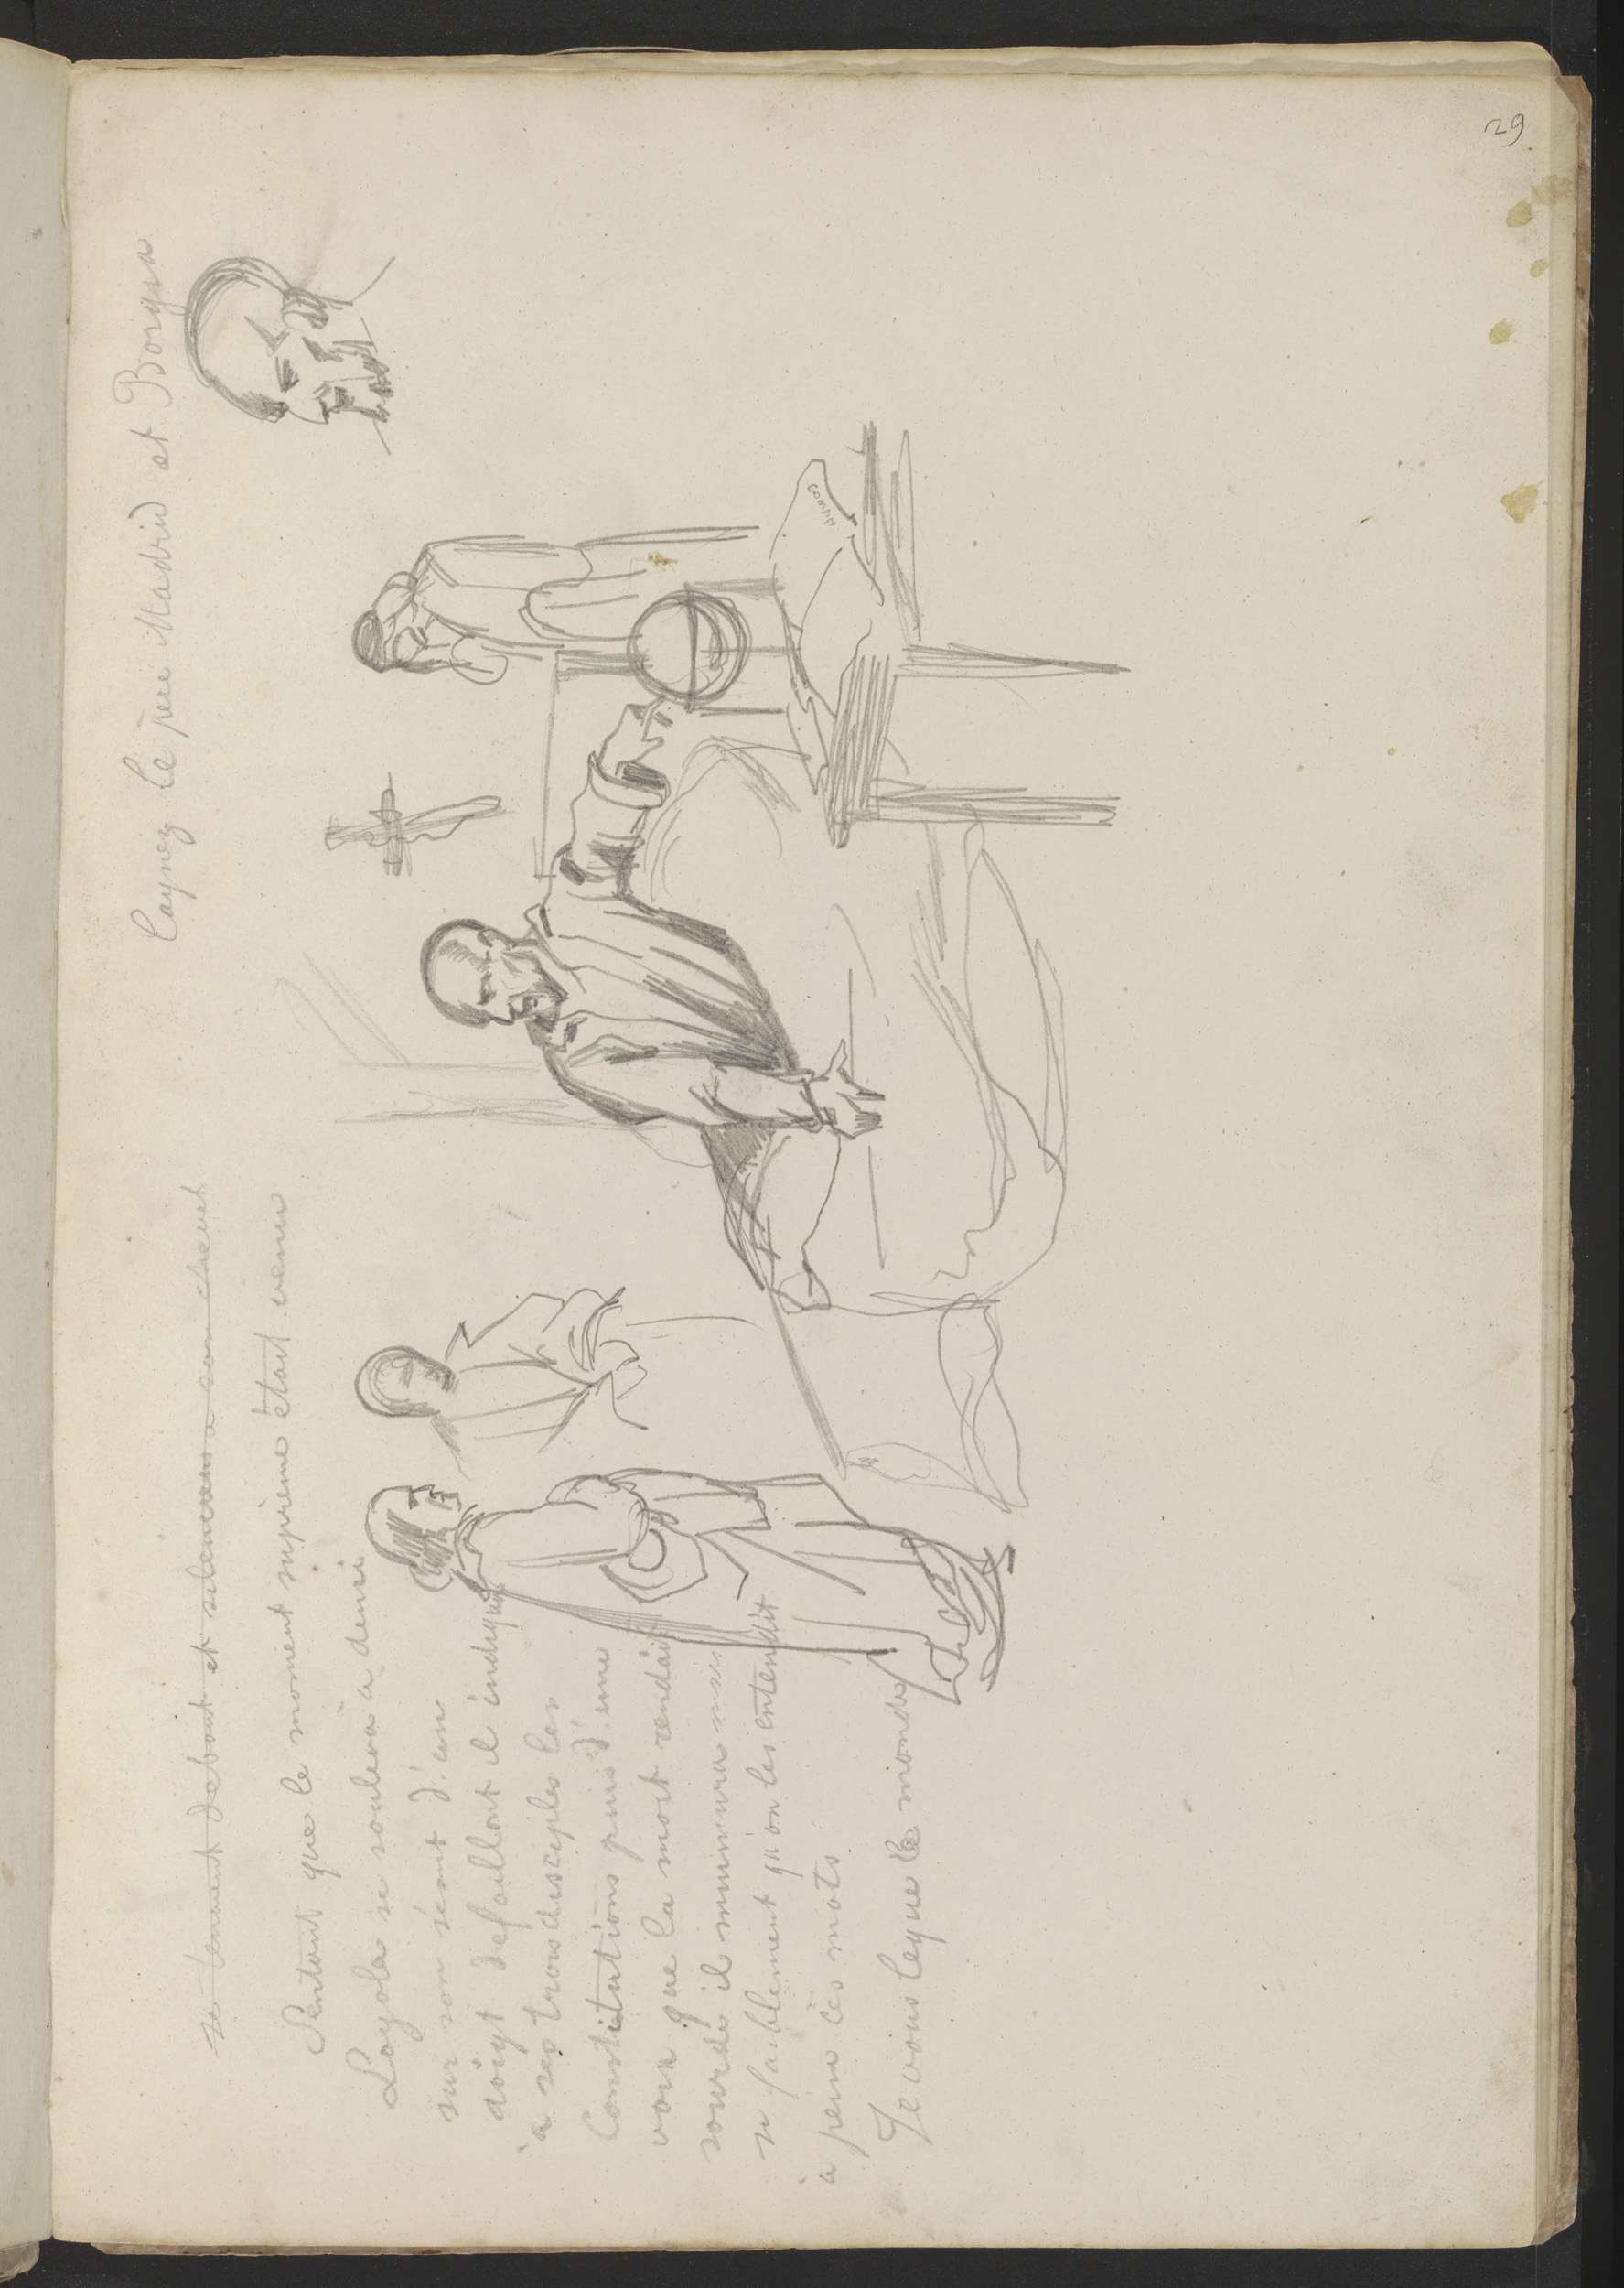 Laynez le père Madrid et Borgia
se tenant debout et silencieux
Sentant que le moment suprème était venu
Loyola se souleva à demi
sur son séant d'un
doigt defaillant il indiqua
à ses trois disciples les
Constitutions puis d'une
voix que la mort rendait
sourde il murmura
si faiblement qu'on les entendit
à peine ces mots
Je vous legue le monde
29